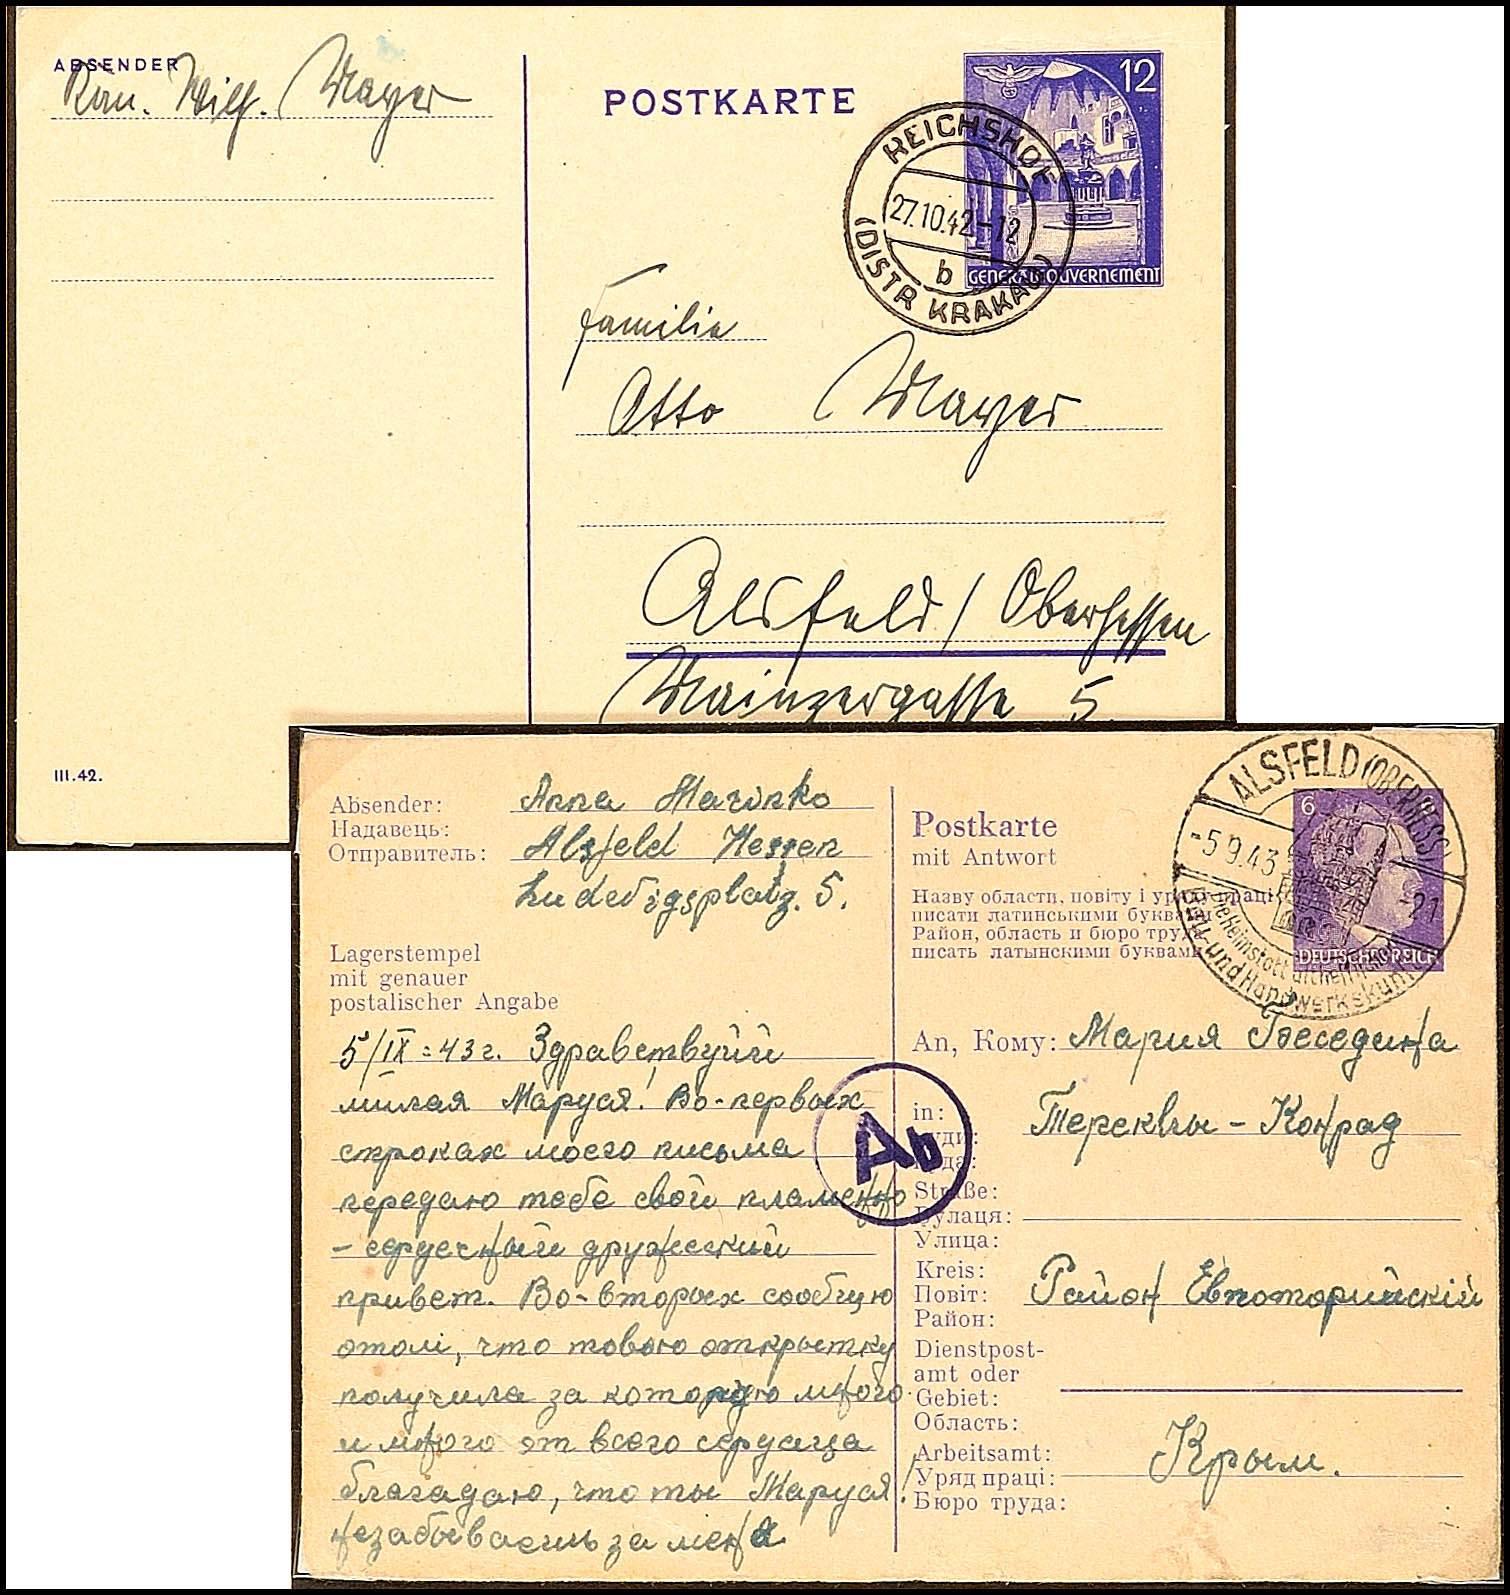 ABSENDER
Wilh. Mayer
POSTKARTE
12
GENERALGOUVERNEMENT
REICHSHOF
27.10.42-12
b
(DISTR KRAKAU)
Familie
Otto Mayer
Alsfeld / Oberhessen
Mainzergasse 5
III.42.
Absender:
Надавець:
Отправитель:
Anna Marinko
Alsfeld Hessen
Ludewigsplatz. 5.
Lagerstempel
mit genauer
postalischer Angabe
5/IX = 43 г. Здравствуйй
милая Маруся! Во-первых
строках моего письма
передаю тебе свой пламенно
- сердечный дружеский
привет. Во-вторых сообщю
отом, что твою открытку
получила за которую много
и много от всего сердца
благадаю, что ты Маруся!
незабываешь за меня
Postkarte
mit Antwort
Назву области, повіту і уряду праці
писати латинськими буквами
Район, область и бюро труда
писать латынскими буквами
6
DEUTSCHES REICH
ALSFELD (OBERHESS)
-5.9.43
-21
Bau- und Handwerkskunst
Ab
An, Кому: Мария Беседина
in:
Тереклы - Конрад
Straße:
Вулаця:
Улица:
Kreis:
Повіт:
Район:
Район Евпоторийскій
Dienstpost-
amt oder
Gebiet:
Область:
Arbeitsamt:
Уряд праці:
Бюро труда:
Крым.